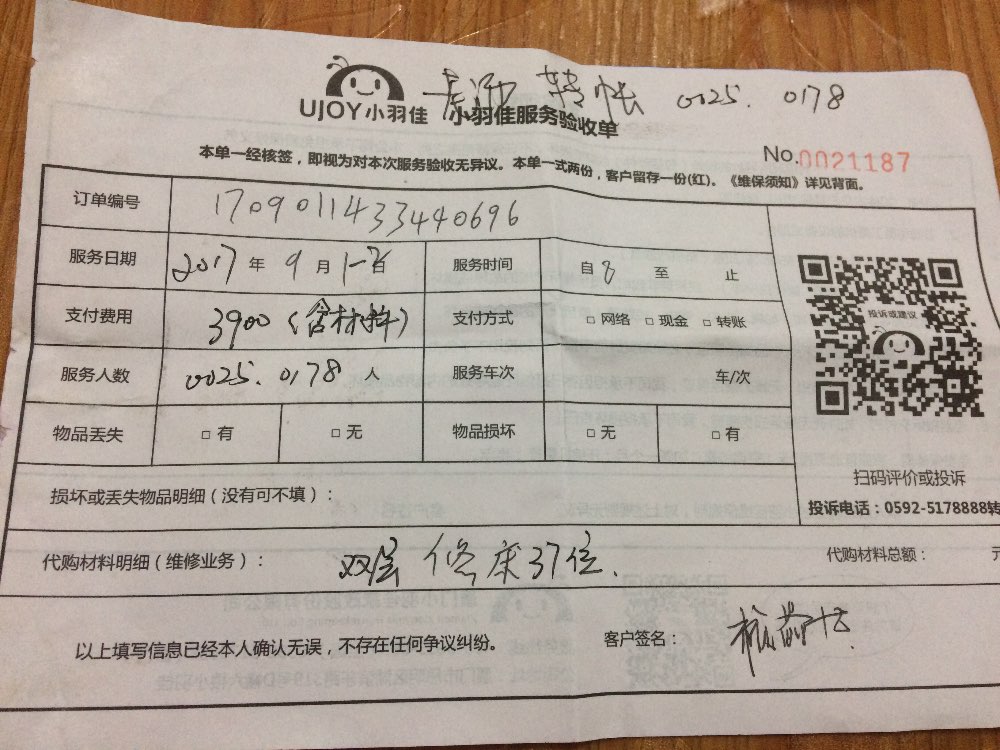 转帐 0025. 0178
UJOY小羽佳 小羽佳服务验收单
No.0021187
本单一经核签，即视为对本次服务验收无异议。本单一式两份，客户留存一份(红)。《维保须知》详见背面。
订单编号 1709011433440696
服务日期 2017 年 9 月 日 服务时间 自 8 至 止
支付费用 3900（含材料） 支付方式 □ 网络 □ 现金 □ 转账
投诉或建议
服务人数 0025.0178 人 服务车次 车/次
物品丢失 □ 有 □ 无 物品损坏 □ 无 □ 有
扫码评价或投诉
损坏或丢失物品明细（没有可不填）：
投诉电话：0592-5178888转
代购材料明细（维修业务）： 双层 床37位. 代购材料总额： 元
以上填写信息已经本人确认无误，不存在任何争议纠纷。 客户签名：